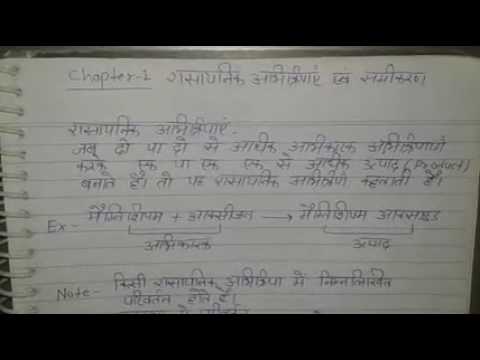 Chapter-1 रासायनिक अभिक्रियाएं एवं समीकरण
रासायनिक अभिक्रियाएं -
जब दो या दो से अधिक अभिकारक अभिक्रियाएं
करके एक या एक से अधिक उत्पाद (Product)
बनाते हैं। तो यह रासायनिक अभिक्रिया कहलाती है।
Ex:- मैग्निशियम + आक्सीजन → मैग्निशियम आक्साइड
अभिकारक उत्पाद
Note:- किसी रासायनिक अभिक्रिया में निम्नलिखित
परिवर्तन होते हैं।
में परिवर्तन